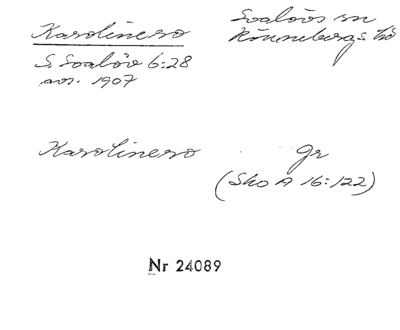 Karolinero
Svalövs sn
Rönnebergs hd
S. Svalöv 6:28
avs. 1907
Karolinero
gr
(Sko A 16:122)
Nr 24089